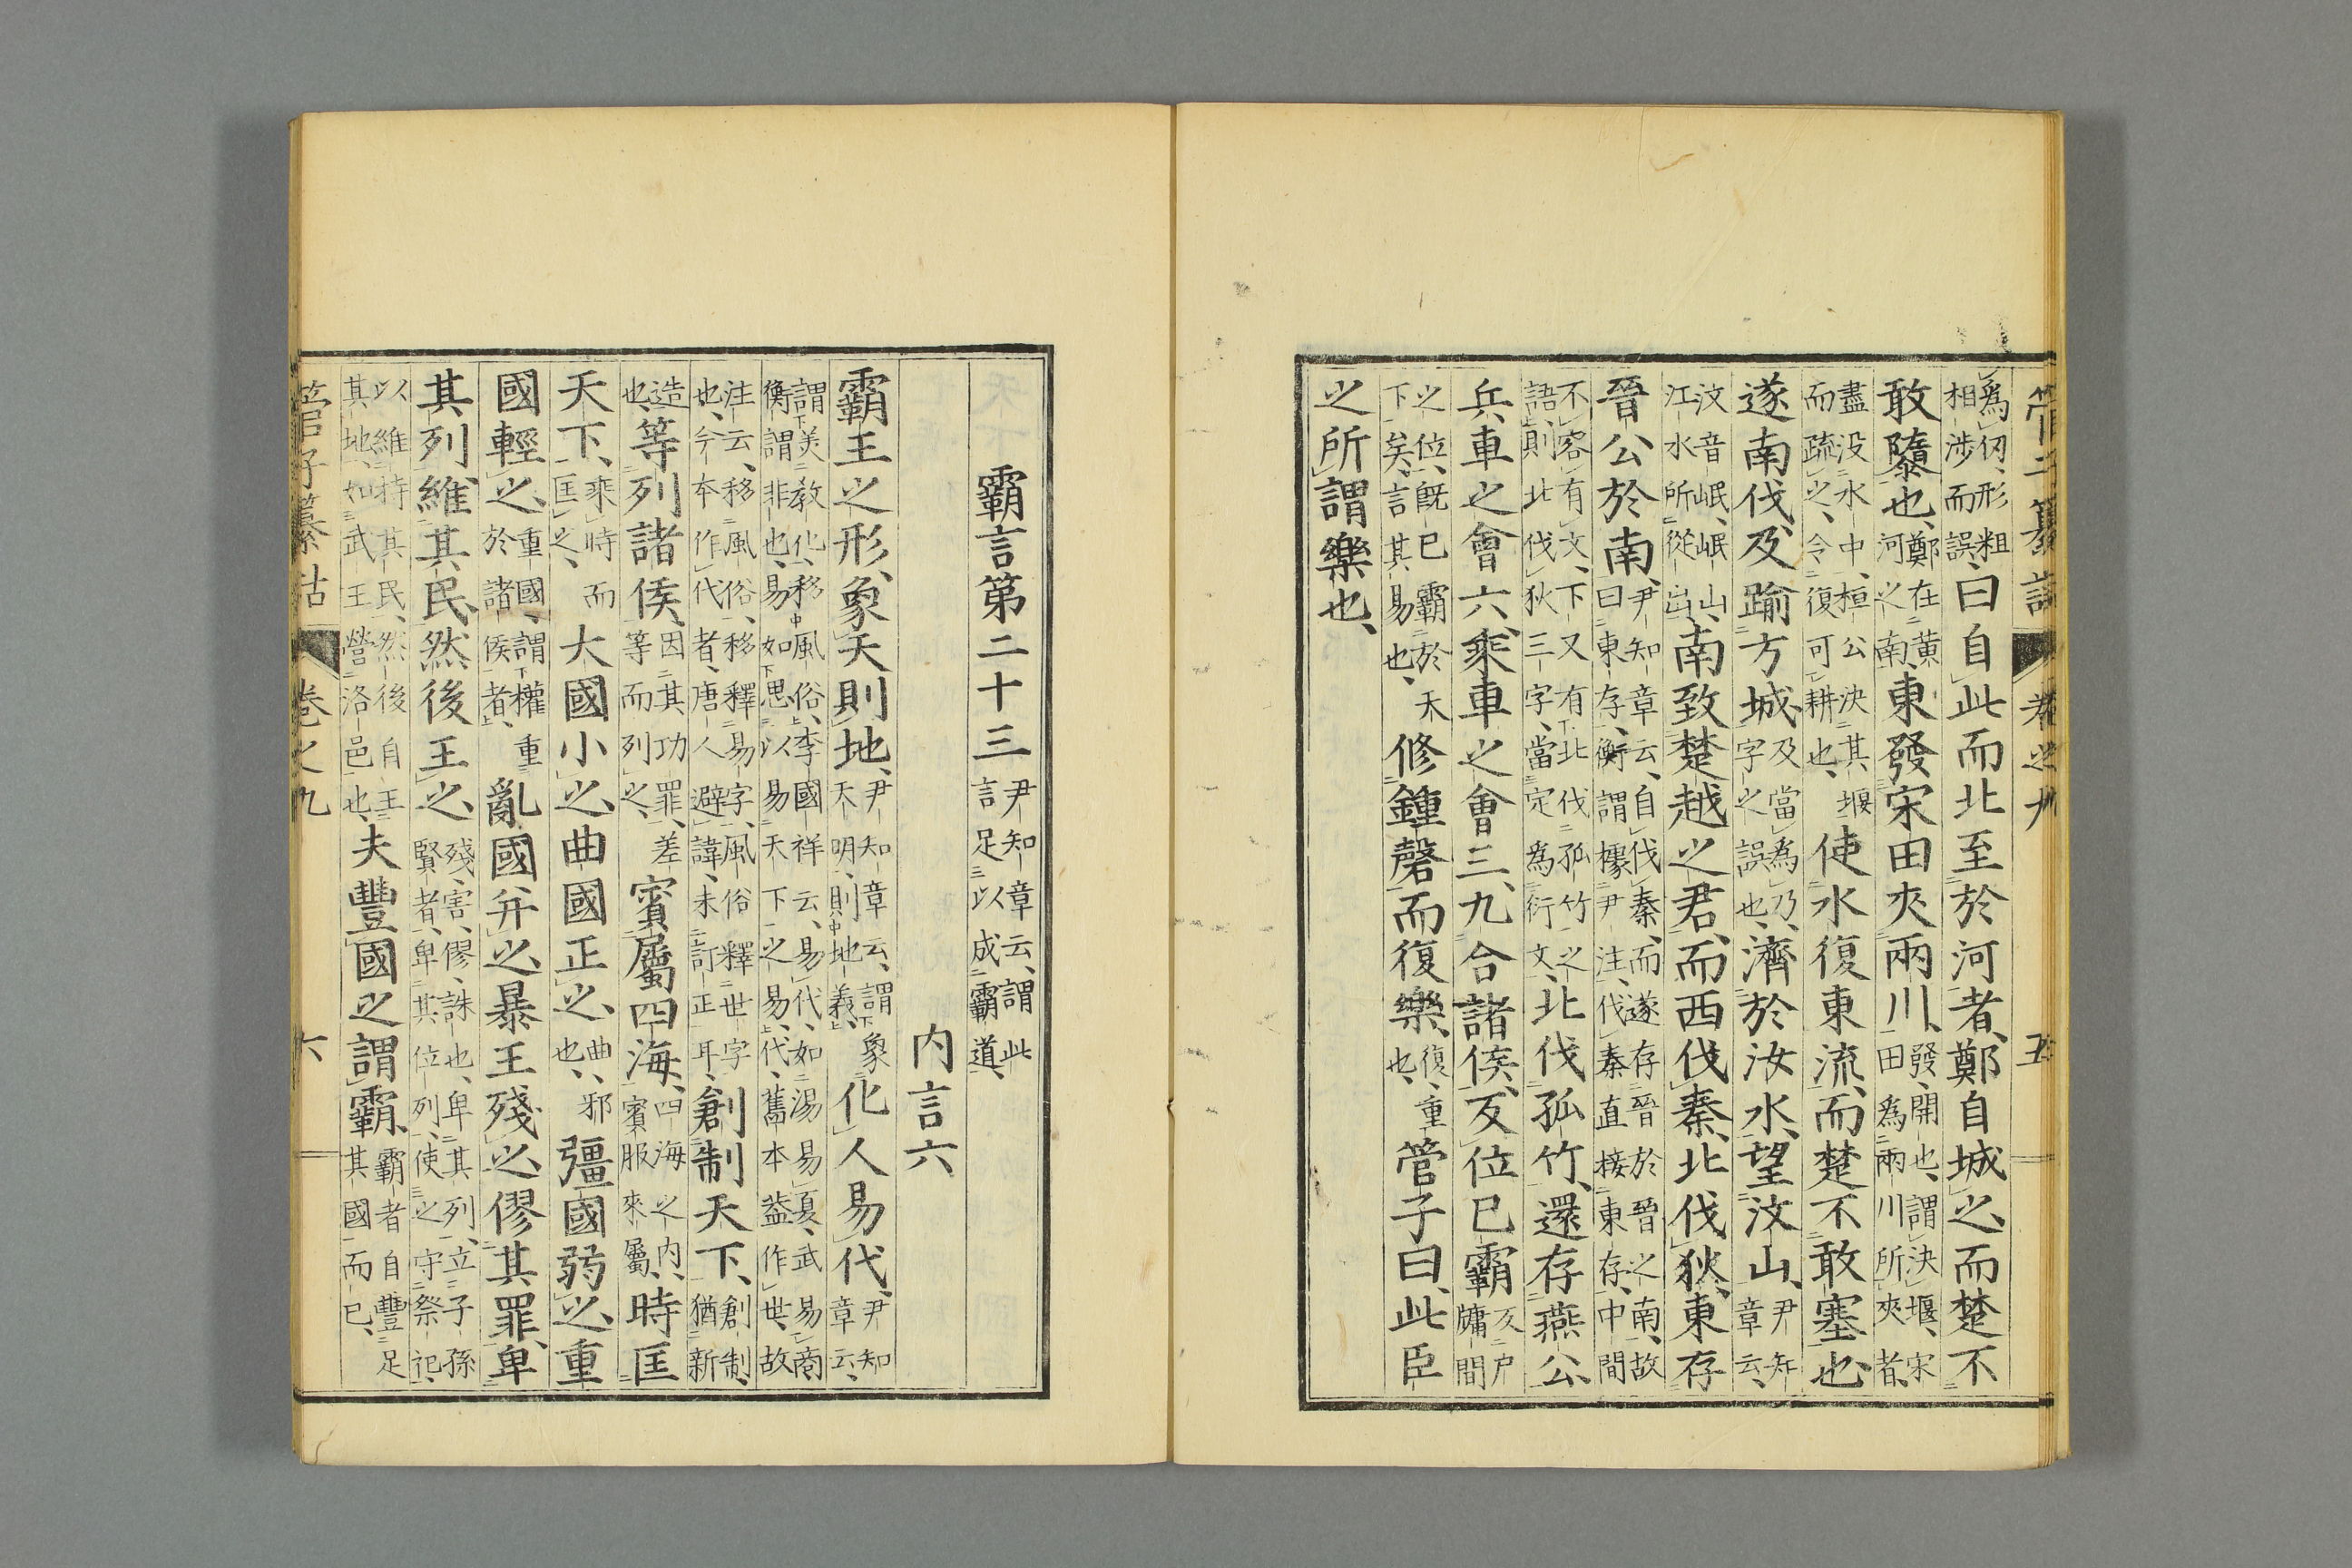 管子纂詁　卷之九　五
爲仞、形粗相涉而誤、曰自此而北至於河者、鄭自城之、而楚不
敢隳也、鄭在黃河之南、東發宋田夾兩川、發、開也、謂決堰、宋田爲兩川所夾者、
盡没水中、桓公決其堰而疏之、令復可耕也、使水復東流、而楚不敢塞也、
遂南伐及踰方城、及當爲乃、字之誤也、濟於汝水、望汶山、尹知章云、
汶音岷、岷山、江水所從出、南致楚越之君、而西伐秦、北伐狄、東存
晉公於南、尹知章云、自伐秦、而遂存晉於晉之南、故曰東存、衡謂據尹注、伐秦直接東存、中間
不容有文、下又有北伐孤竹之語、則北伐狄三字、當定爲衍文、北伐孤竹、還存燕公、
兵車之會六、乘車之會三、九合諸侯、反位已霸反戶牖間
之位、既已霸於天下矣、言其易也、修鍾磬而復樂、復、重也、管子曰、此臣
之所謂樂也、
霸言第二十三尹知章云、謂此言足以成霸道、
内言六
霸王之形、象天則地、尹知章云、謂象天明、則地義、化人易代、尹知章云、
謂美教化、移風俗、李國祥云、易代、如湯易夏、武易商衡謂非也、易如思以易天下之易、代、舊本蓋作世、故
注云、移風俗、移釋易字、風俗釋世字也、今本作代者、唐人避諱、未訂正耳、創制天下、創制、猶新
造也、等列諸侯、因其功罪、差等而列之、賓屬四海、四海之内、賓服來屬、時匡
天下、乘時而匡之、大國小之、曲國正之、曲、邪也、彊國弱之、重
國輕之、重國、謂權重於諸侯者、亂國并之、暴王殘之、僇其罪、卑
其列、維其民、然後王之、殘、害、僇、誅也、卑其列、立子孫賢者、卑其位列、使之守祭祀、
以維持其民、然後自王其地、如武王營洛邑也、夫豐國之謂霸、霸者自豐足其國而已、
管子纂詁　卷之九　六